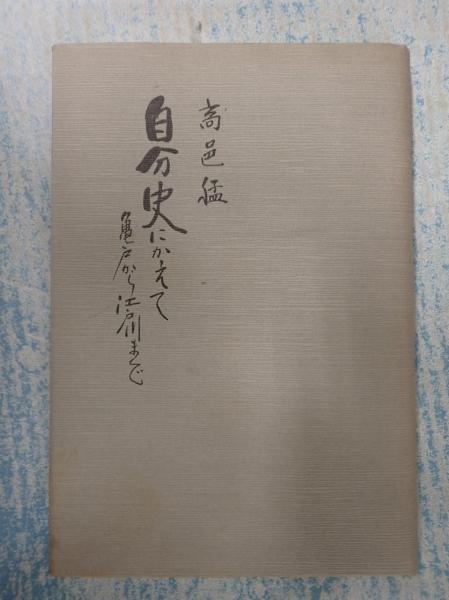 高邑猛
自分史にかえて
亀戸から江戸川まで